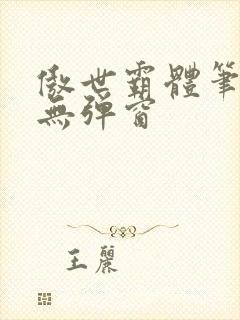 傲世霸體筆
無彈窗
王麗